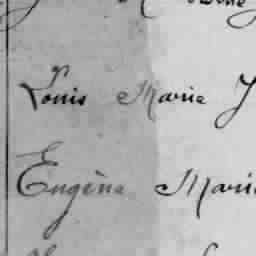 Louis Marie J
Eugène Marie